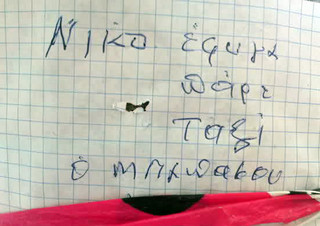 Νίκο έφυγα
πάρε
ταξί
ο μπαμπας σου